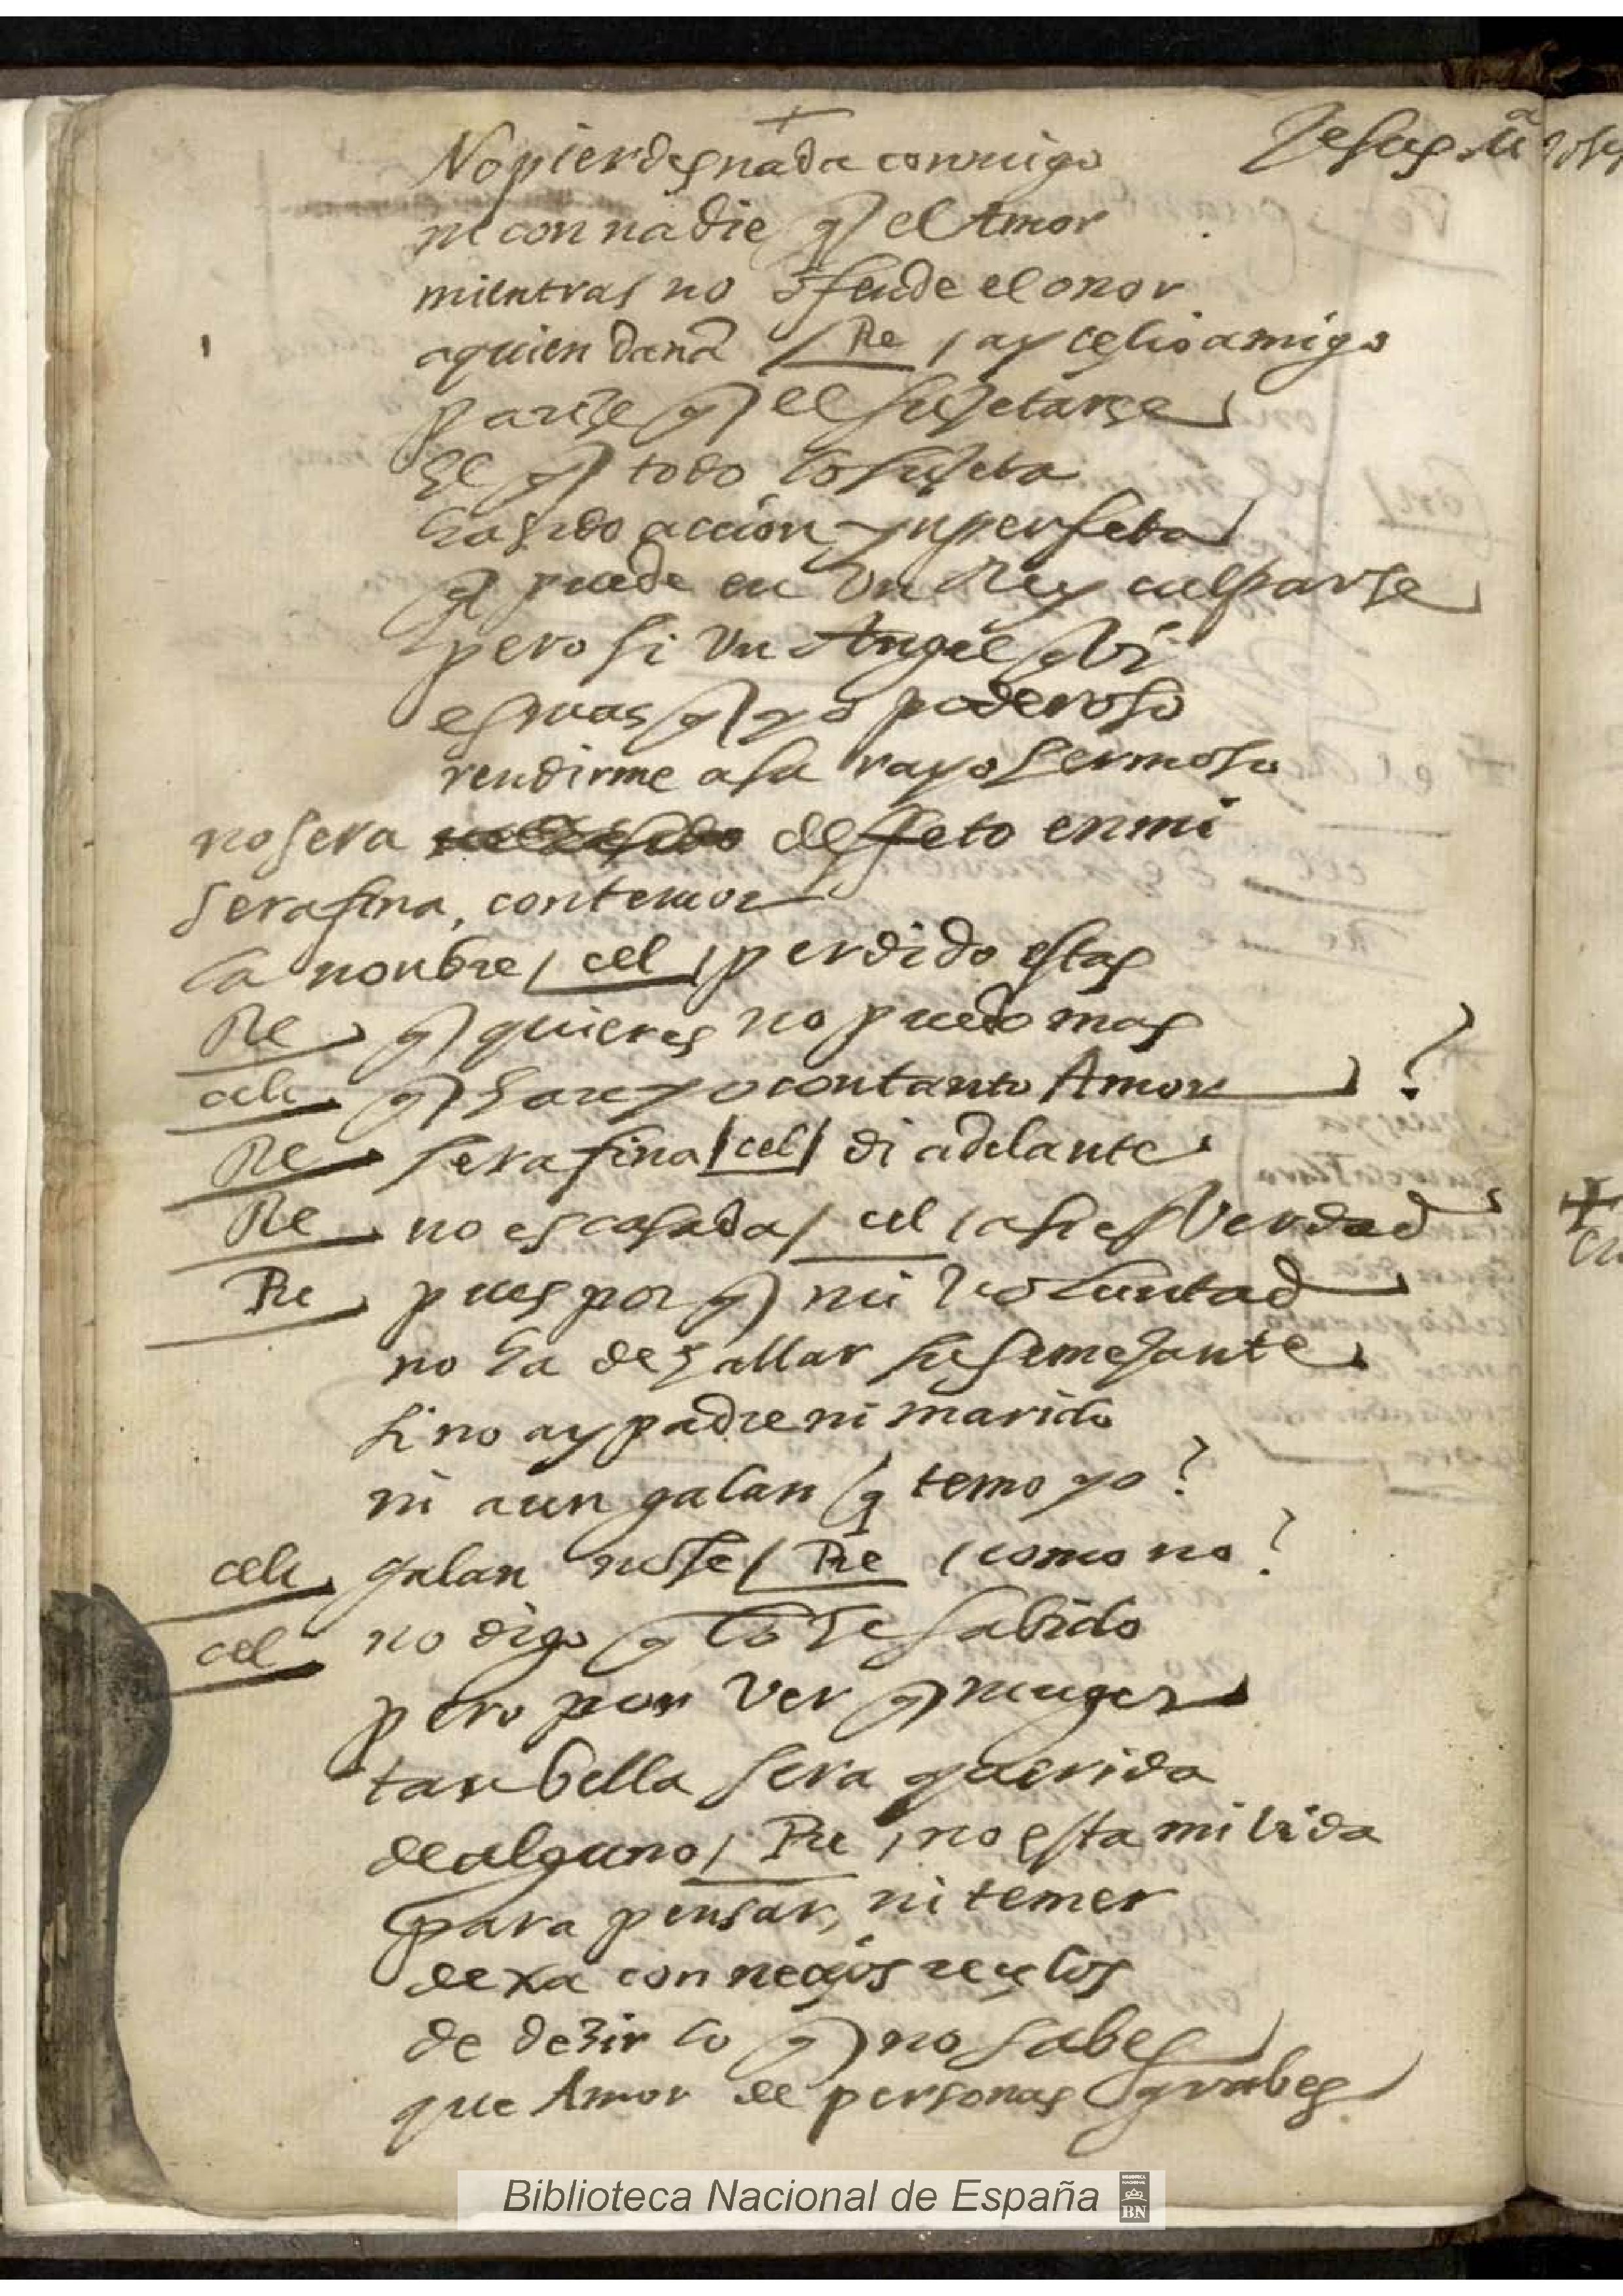 +
Jesus mª Josef
No pierdes nada conmigo
ni con nadie q el Amor
mientras no ofende el onor
a quien daña / Re / ay celio amigo
pareze q el sujetarse
El q todo lo sujeta
ha sido accion ynperfeta
q puede en Un Rey culparse
pero si Un Angel q Vi
es mas q yo poderoso
rendirme a su rayo hermoso
no sera defeto en mi
Serafina, con temor
la nonbre / cel / perdido estas
Re q quieres no puedo mas
celi q hare yo con tanto Amor ?
Re serafina / cel / di adelante
Re no es casada / cel / asi es Verdad
Re pues por q mi Voluntad
no ha de hallar su semejante
si no ay padre ni marido
ni aun galan q temo yo ?
celi galan no se / Re / como no ?
cel no digo q lo he sabido
pero por Ver q muger
tan bella sera querida
de alguno / Re / no esta mi bida
para pensar, ni temer
dexa con necios reçelos
de dezir lo q no sabes
que Amor de personas grabes
Biblioteca Nacional de España
BN